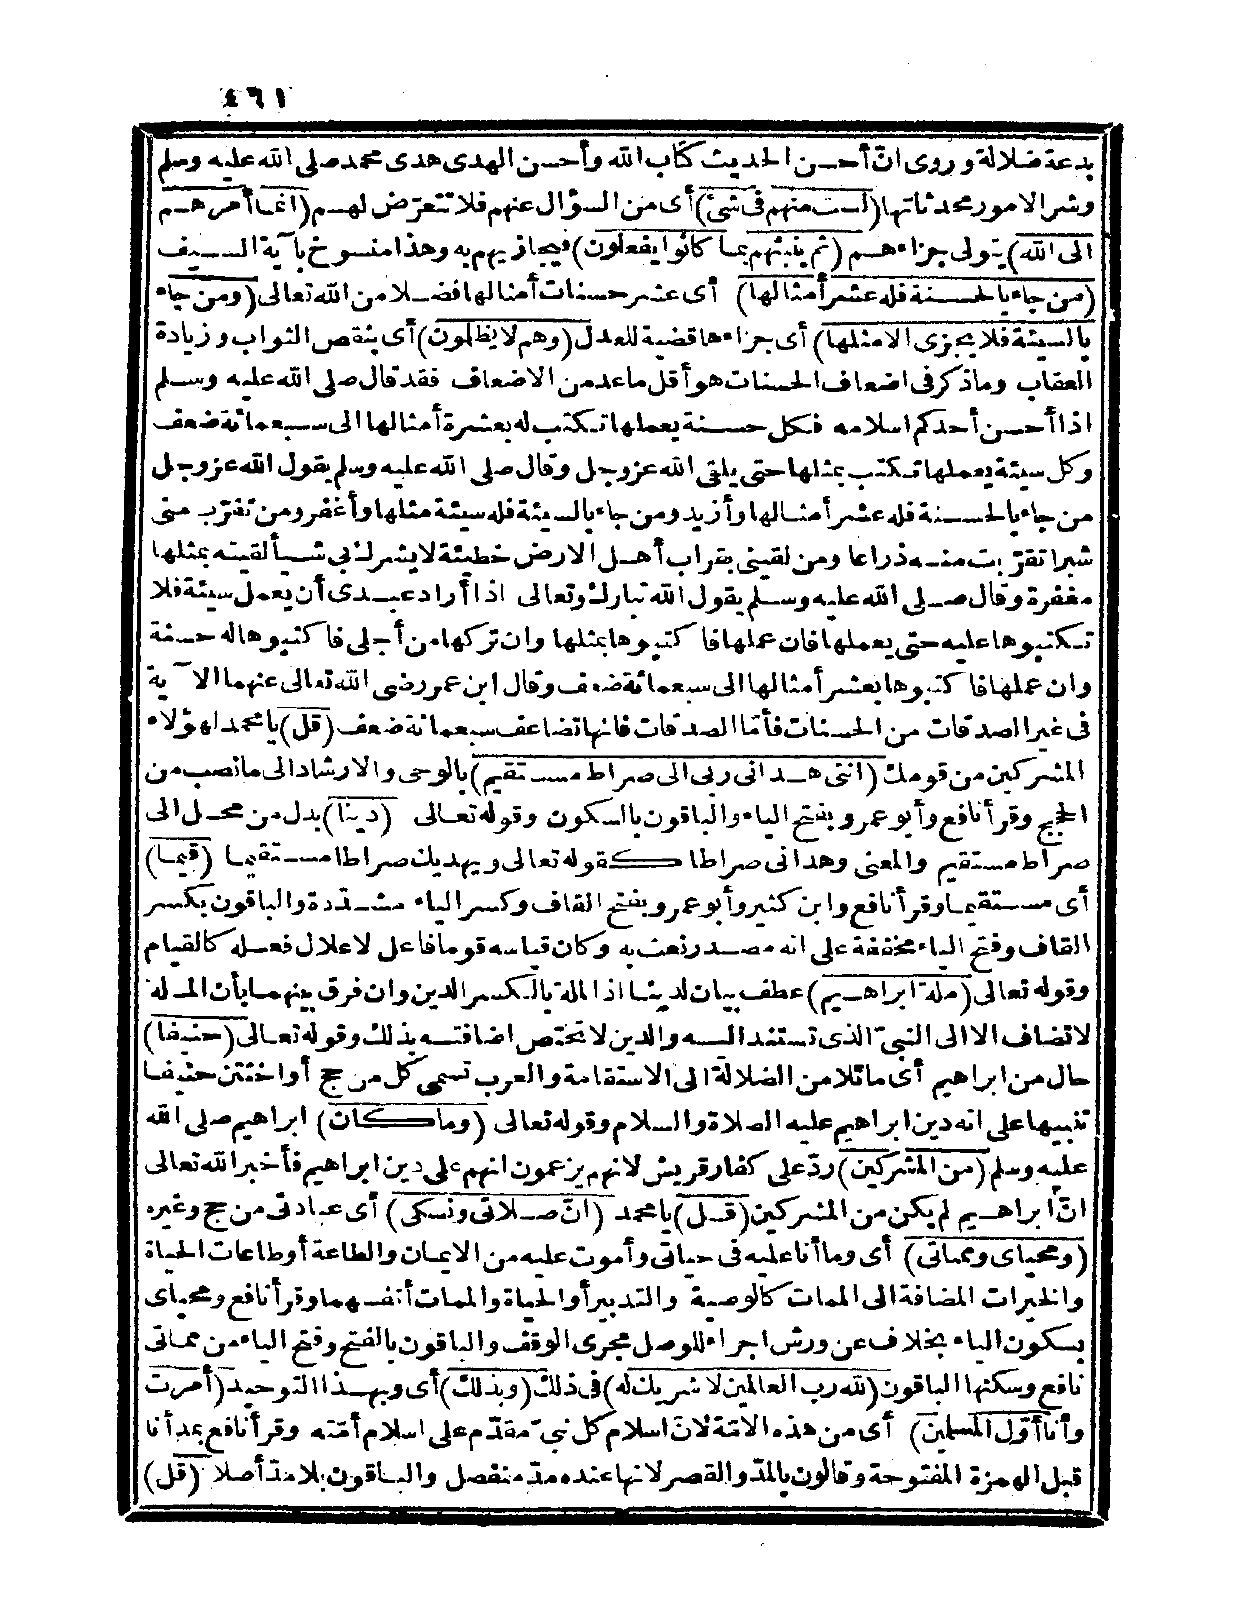 ٤٦١
بدعة ضلالة وروى انّ أحسن الحديث كتاب الله وأحسن الهدى هدى محمد صلى الله عليه وسلم
وشر الامور محدثاتها (لست منهم فى شئ) أى من السؤال عنهم فلا تتعرّض لهم (انما أمرهم
الى الله) يتولى جزاءهم (ثم ينبئهم بما كانوا يفعلون) فيجازيهم به وهذا منسوخ بآية السيف
(من جاء بالحسنة فله عشر أمثالها) أى عشر حسنات أمثالها فضلا من الله تعالى (ومن جاء
بالسيئة فلا يجزى الا مثلها) أى جزاءها قضية للعدل (وهم لا يظلمون) أى بنقص الثواب وزيادة
العقاب وما ذكر فى اضعاف الحسنات هو أقل ما عد من الاضعاف فقد قال صلى الله عليه وسلم
اذا أحسن أحدكم اسلامه فكل حسنة يعملها تكتب له بعشرة أمثالها الى سبعمائة ضعف
وكل سيئة يعملها تكتب بمثلها حتى يلقى الله عز وجل وقال صلى الله عليه وسلم يقول الله عز وجل
من جاء بالحسنة فله عشر أمثالها وأزيد ومن جاء بالسيئة فله سيئة مثلها وأغفر ومن تقرّب منى
شبرا تقرّبت منه ذراعا ومن لقينى بقراب أهل الارض خطيئة لا يشرك بى شيأ لقيته بمثلها
مغفرة وقال صلى الله عليه وسلم يقول الله تبارك وتعالى اذا أراد عبدى أن يعمل سيئة فلا
تكتبوها عليه حتى يعملها فان عملها فاكتبوها بمثلها وان تركها من أجلى فاكتبوها له حسنة
وان عملها فاكتبوها بعشر أمثالها الى سبعمائة ضعف وقال ابن عمر رضى الله تعالى عنهما الآية
فى غير الصدقات من الحسنات فأمّا الصدقات فانها تضاعف سبعمائة ضعف (قل) يا محمد لهؤلاء
المشركين من قومك (اننى هدانى ربى الى صراط مستقيم) بالوحى والارشاد الى ما نصب من
الحجج وقرأ نافع وأبو عمرو بفتح الياء والباقون بالسكون وقوله تعالى (دينا) بدل من محل الى
صراط مستقيم والمعنى وهدانى صراطا كقوله تعالى ويهديك صراطا مستقيما (قيما)
أى مستقيما وقرأ نافع وابن كثير وأبو عمرو بفتح القاف وكسر الياء مشددة والباقون بكسر
القاف وفتح الياء مخففة على انه مصدر نعت به وكان قياسه قوما فاعل لاعلال فعله كالقيام
وقوله تعالى (ملة ابراهيم) عطف بيان لدينا اذا الملة بالكسر الدين وان فرق بينهما بأن الملة
لا تضاف الا الى النبىّ الذى تستند اليه والدين لا تختص اضافته بذلك وقوله تعالى (حنيفا)
حال من ابراهيم أى مائلا من الضلالة الى الاستقامة والعرب تسمى كل من حج أو اختتن حنيفا
تنبيها على انه دين ابراهيم عليه الصلاة والسلام وقوله تعالى (وما كان) ابراهيم صلى الله
عليه وسلم (من المشركين) ردّ على كفار قريش لانهم يزعمون انهم على دين ابراهيم فأخبر الله تعالى
انّ ابراهيم لم يكن من المشركين (قل) يا محمد (انّ صلاتى ونسكى) أى عبادتى من حج وغيره
(ومحياى ومماتى) أى وما أنا عليه فى حياتى وأموت عليه من الايمان والطاعة أو طاعات الحياة
والخيرات المضافة الى الممات كالوصية والتدبير أو الحياة والممات أنفسهما وقرأ نافع ومحياى
بسكون الياء بخلاف عن ورش اجراء للوصل مجرى الوقف والباقون بالفتح وفتح الياء من مماتى
نافع وسكنها الباقون (لله رب العالمين لا شريك له) فى ذلك (وبذلك) أى وبهذا التوحيد (أمرت
وأنا أوّل المسلمين) أى من هذه الامّة لانّ اسلام كل نبىّ مقدّم على اسلام أمّته وقرأ نافع بمد أنا
قبل الهمزة المفتوحة وقالون بالمدّ والقصر لانها عنده مدّ منفصل والباقون بلا مدّ أصلا (قل)